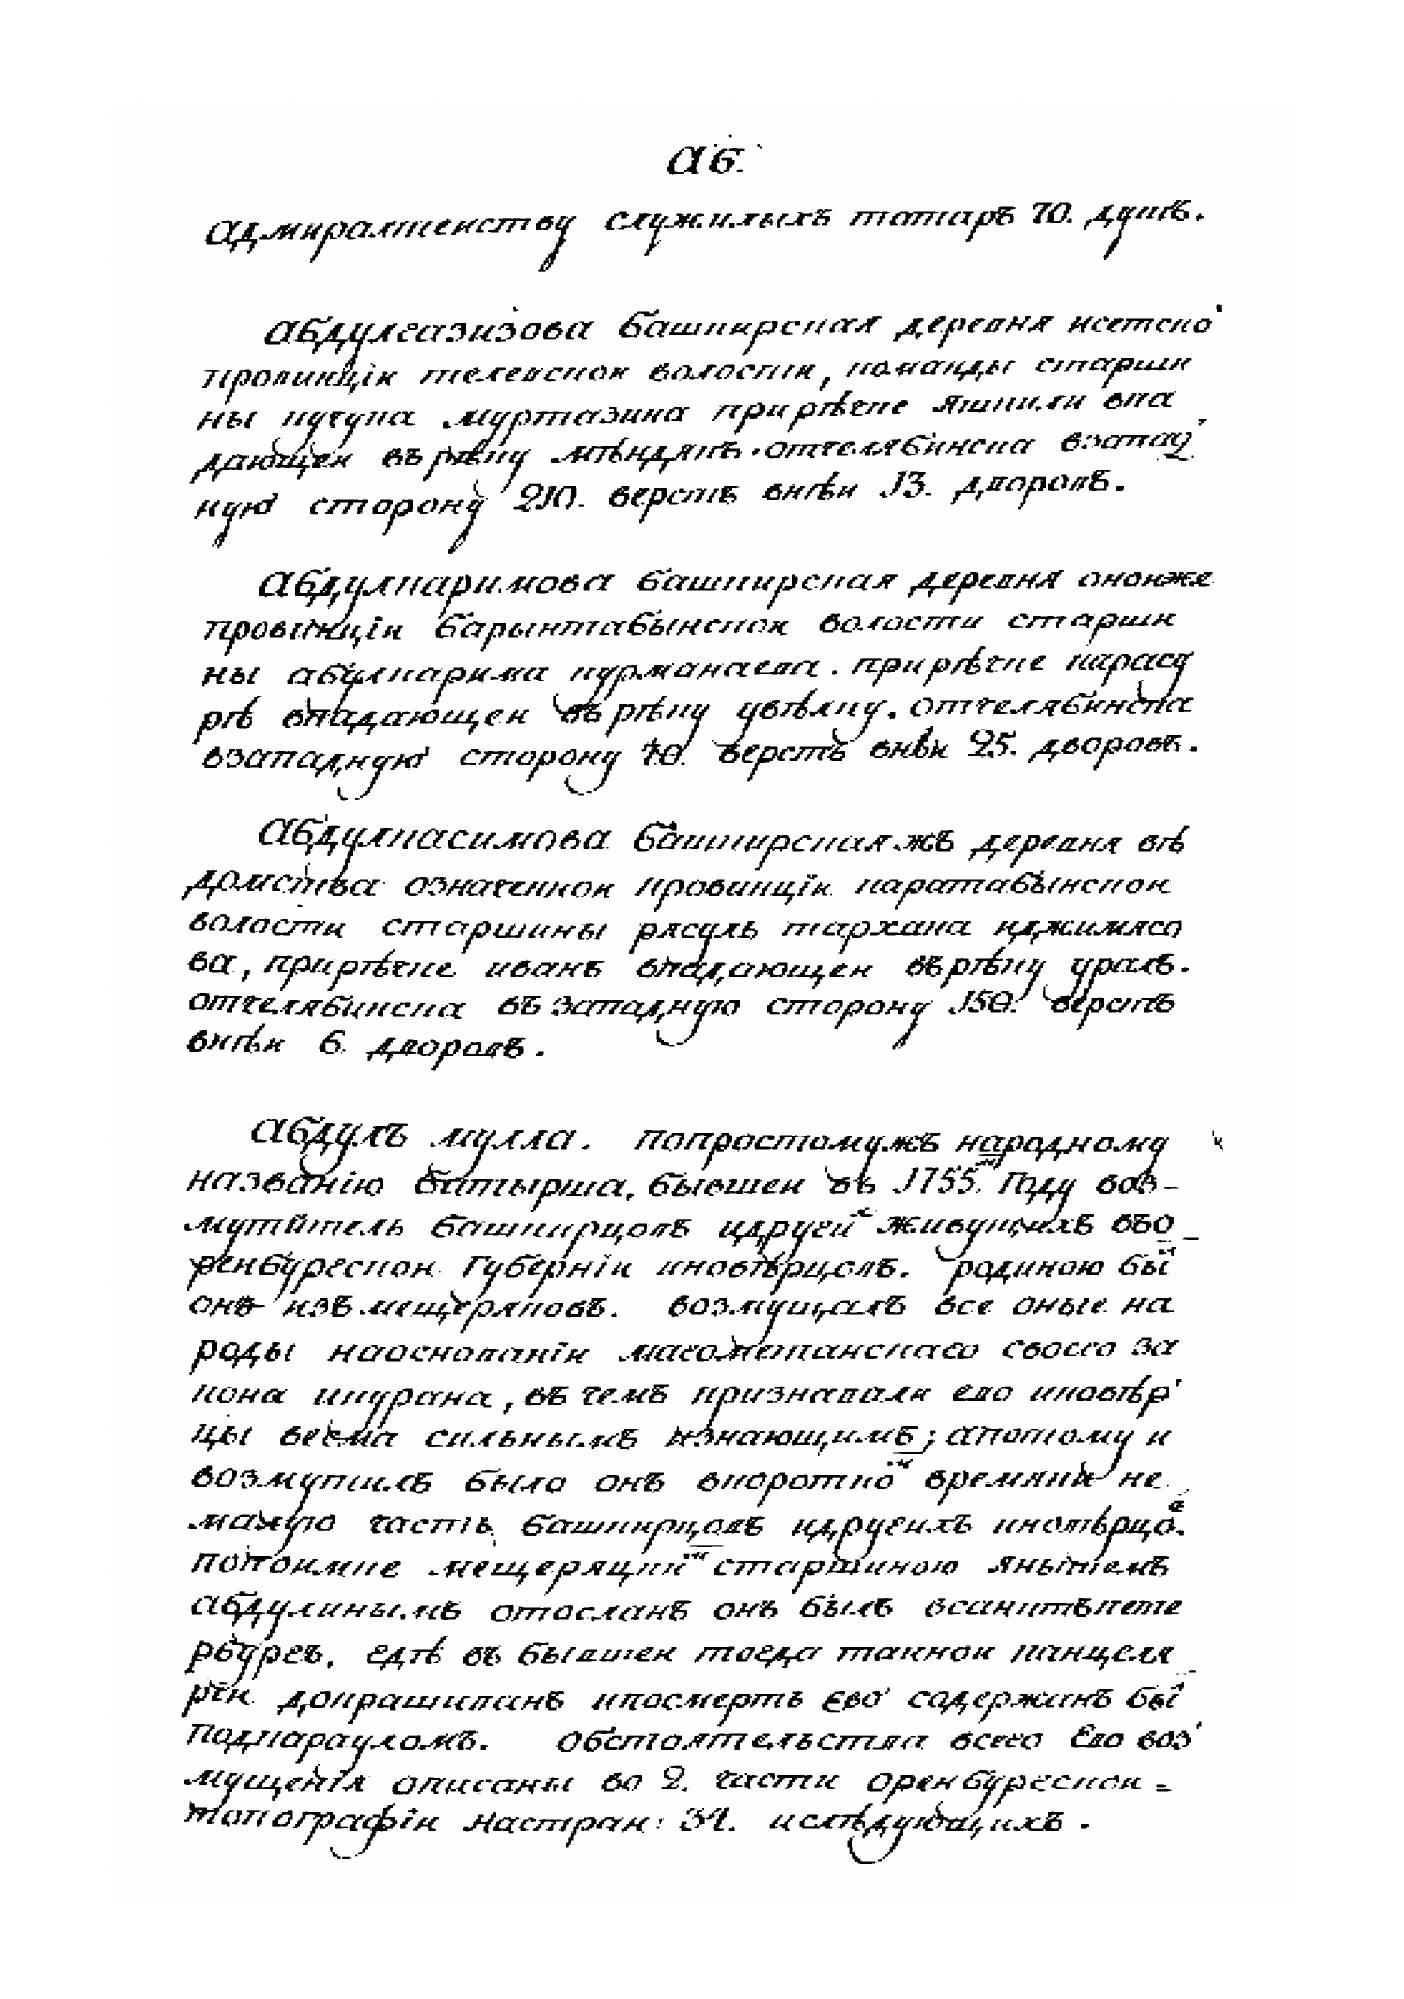 Аб.
Адмиралтеиству служилыхъ татаръ 70. душъ.
Абдулгазизова башкирская деревня исетско
провинціи телевской волости, команды старши
ны кучука муртазина прирѣчке яшкили впа
дающеи върѣку мѣндякъ. отчелябинска взапад
ную сторону 210. верстъ внѣи 13. дворовъ.
Абдулкаримова башкирская деревня онойже
провинціи барынтабынской волости старши
ны абулкарима курманаева. прирѣчке карасу
рѣ впадающеи върѣку увѣлку. отчелябинска
взападную сторону 70. верстъ внѣи 25. дворовъ.
Абдулкасимова башкирскаяжъ деревня вѣ
домства означеннои провинціи каратабынскои
волости старшины расуль тархана иджимясо
ва, прирѣчке иванъ впадающеи върѣку уралъ.
отчелябинска въ западную сторону 150. верстъ
внѣи 6. дворовъ.
Абдулъ мулла. попростомужъ народному
названію батырша, бывшеи въ 1755м Году воз-
мутитель башкирцовъ идругихъ живущихъ въо
ренбургскои Губерніи иновѣрцовъ. родиною бы
онъ изъ мещеряковъ. возмущалъ все оные на
роды наоснованіи магометанскаго своего за
кона икурана, въ чемъ признавали ево иновѣр
цы весма сильнымъ изнающимъ; апотому и
возмутилъ было онъ вкороткомъ времяни не
малую часть башкирцовъ идругихъ иновѣрцов.
попоимке мещеряцкимъ старшиною яныщемъ
абдулинымъ отосланъ онъ былъ всанктъпете
рбургъ. гдѣ въ бывшеи тогда таинои канцеля
ріи допрашиванъ ипосмерть ево содержанъ бы
подкарауломъ. Обстоятельства всего Ево воз
мущенія описаны во 2. части оренбургскои
топографіи настран: 34. ислѣдующихъ.